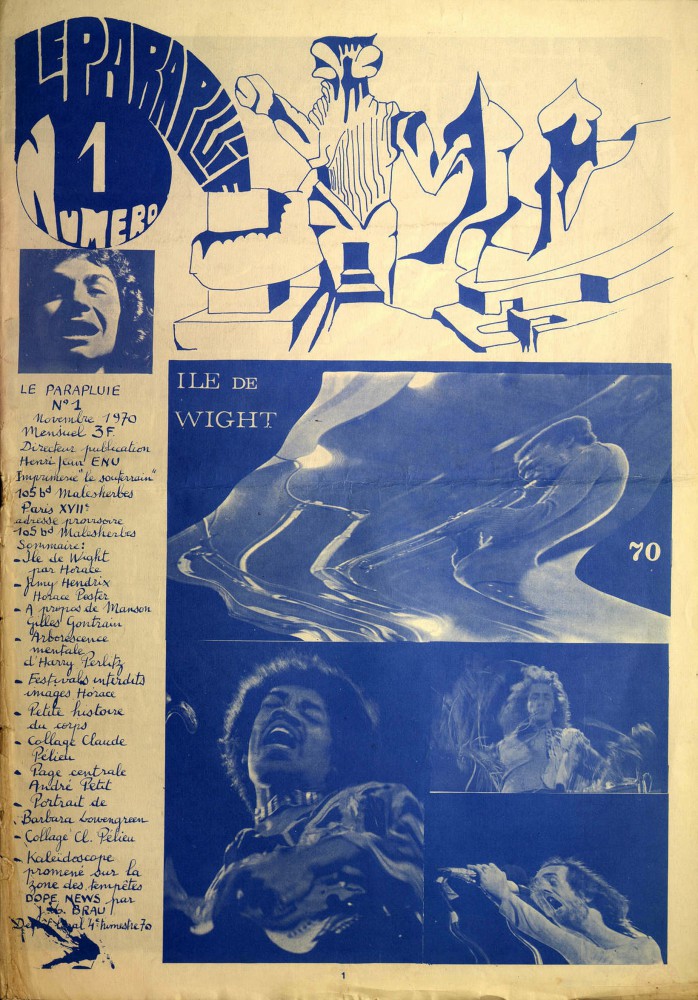 LE PARAPLUIE
NUMERO 1
LE PARAPLUIE
N° 1
Novembre 1970
Mensuel 3F.
Directeur publication
Henri Jean ENU
Imprimerie "le souterrain"
105 bd Malesherbes
Paris XVIIe
adresse provisoire
105 bd Malesherbes
Sommaire:
- Ile de Wight
par Horace
- Jimy Hendrix
Horace Poster
- A propos de Manson
Gilles Gontrain
- Arborescence
mentale
d'Harry Perlitz
- Festivals interdits
images Horace
- Petite histoire
du corps
- Collage Claude
Pélieu
- Page centrale
André Petit
- Portrait de
Barbara Lowengreen
- Collage Cl. Pélieu
- Kaleïdoscope
promené sur la
zone des tempêtes
DOPE NEWS par
BRAU
4e trimestre 70
ILE DE
WIGHT
70
1